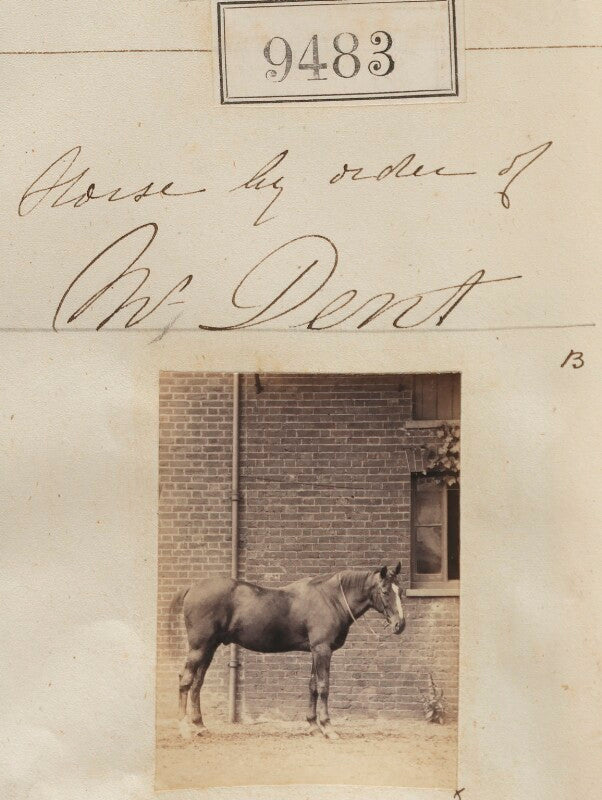 9483
Horse by order of
Mr Dent
B